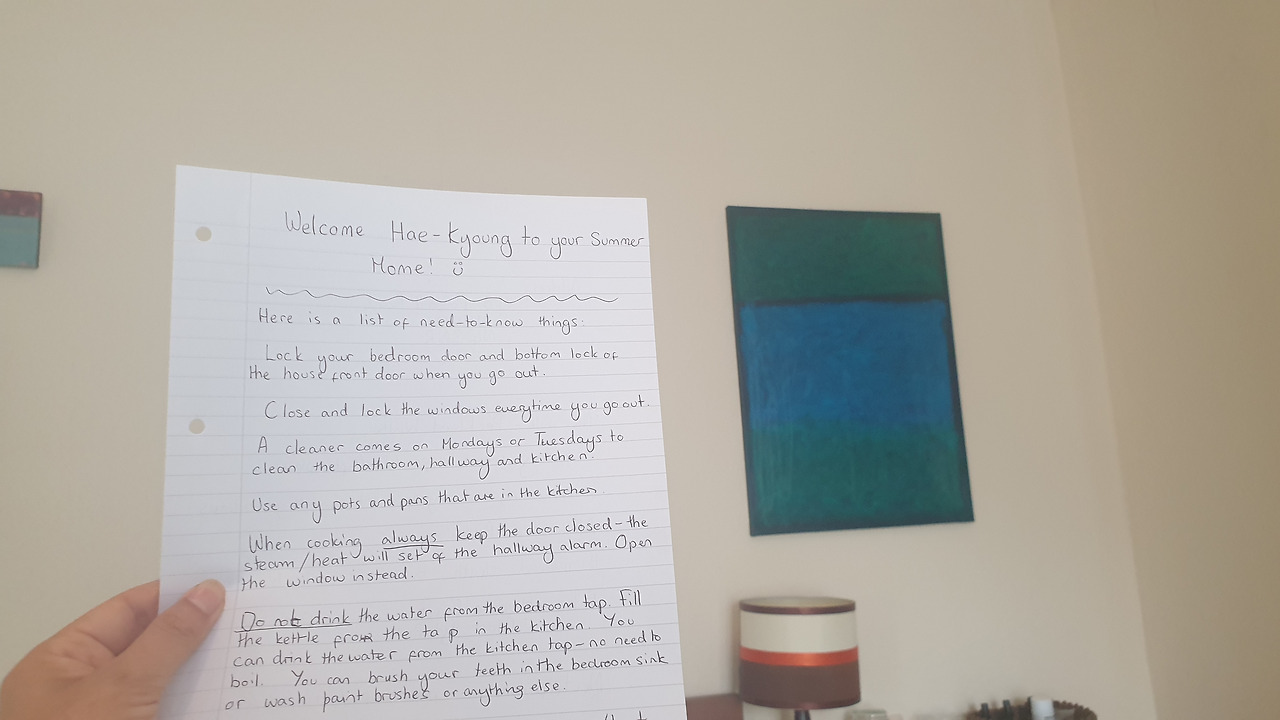 Welcome Hae-Kyoung to your Summer
Home!
Here is a list of need-to-know things:
Lock your bedroom door and bottom lock of
the house front door when you go out.
Close and lock the windows everytime you go out.
A cleaner comes on Mondays or Tuesdays to
clean the bathroom, hallway and kitchen.
Use any pots and pans that are in the kitchen.
When cooking always keep the door closed - the
steam/heat will set of the hallway alarm. Open
the window instead.
Do not drink the water from the bedroom tap. Fill
the kettle from the tap in the kitchen. You
can drink the water from the kitchen tap - no need to
boil. You can brush your teeth in the bedroom sink
or wash paint brushes or anything else.